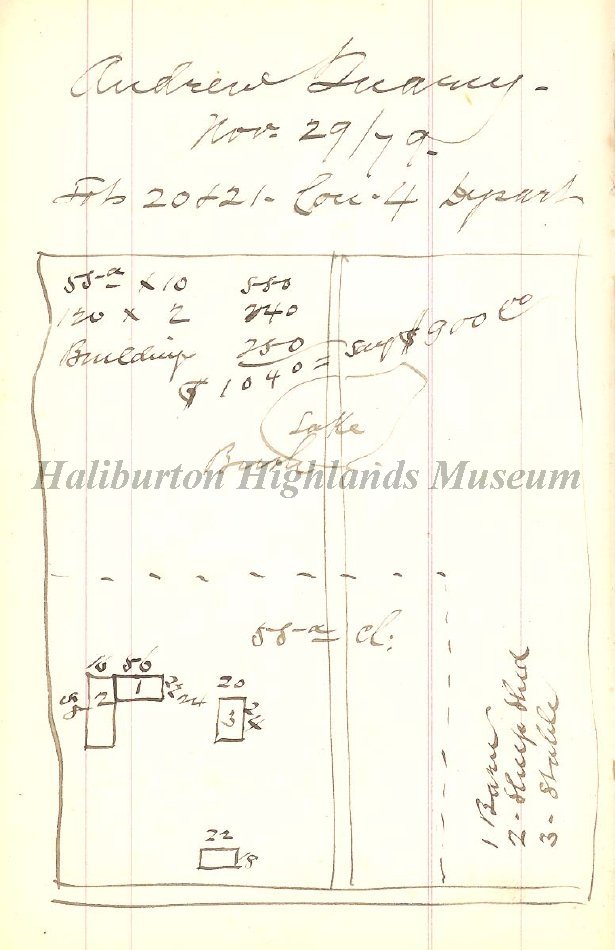 Andrew
Nov. 29/79
Lots 20 & 21. Con. 4 Dysart
55-a × 10 550
120 × 2 240
Building 250
$1040 = say $900 00
Lake
Bush
Haliburton Highlands Museum
55-a Cl:
16 56
1
2
24
20
3
24
22
18
1 Barn
2 - Sheep Shed
3 - Stable